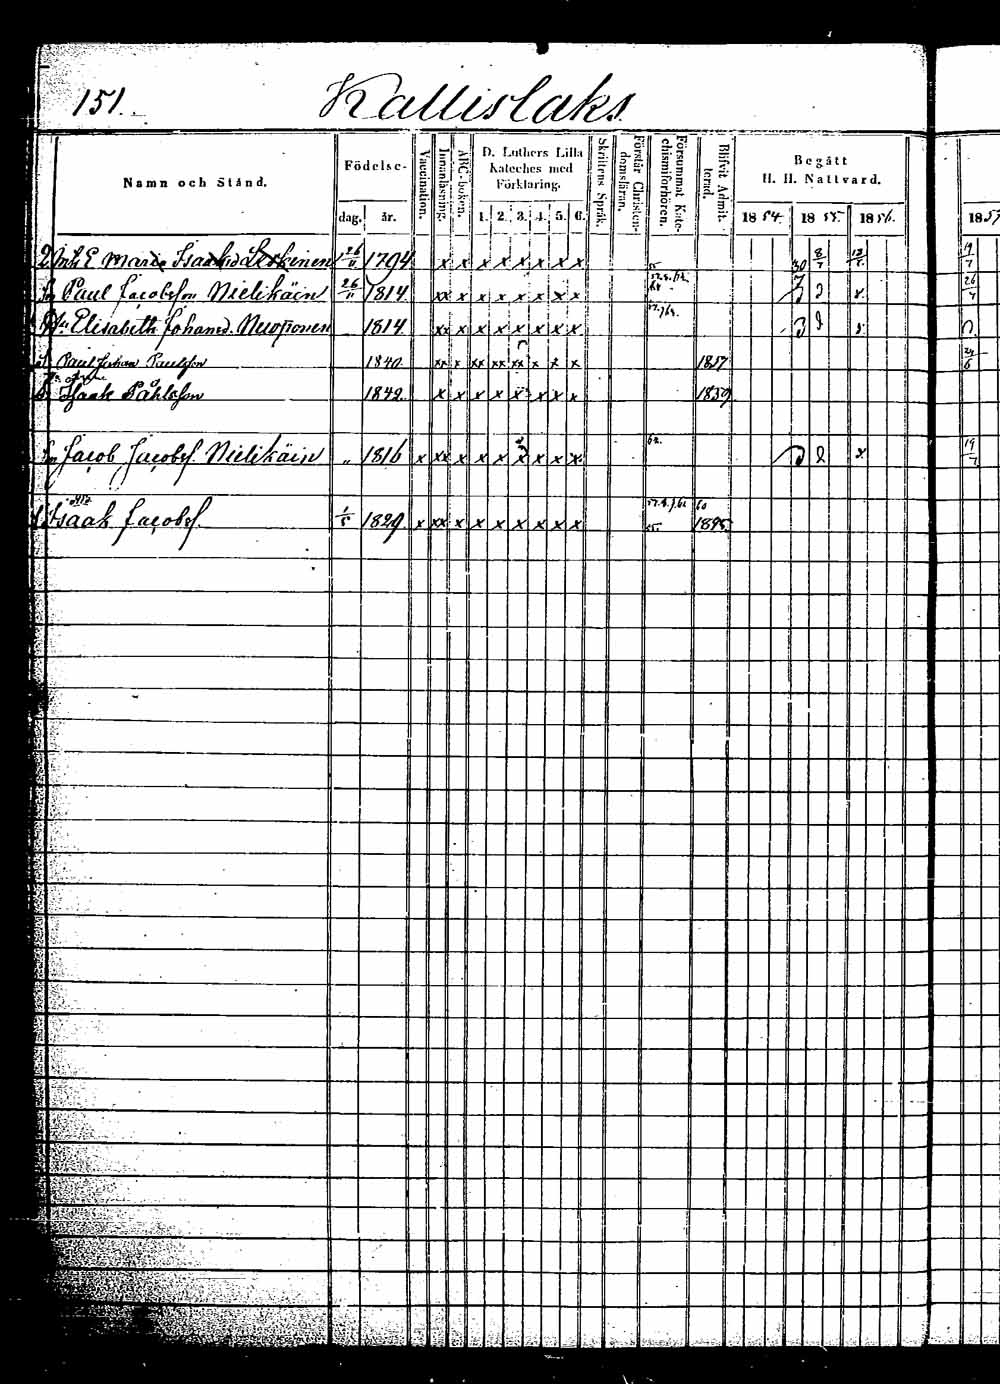 151.
Kallislaks
Namn och Stånd.
Födelse-
dag. år.
Vaccination.
Innanläsning.
ABC-boken.
D. Luthers Lilla
Kateches med
Förklaring.
1. 2. 3. 4. 5. 6.
Skriftens Språk.
Förstår Christen-
domsläran.
Försummat Kate-
chismiförhören.
Blifvit Admit-
terad.
Begått
H. H. Nattvard.
1854. 1855. 1856. 1857
E Maria Isaaksd Leskinen 26/11 1794 x x x x x x x x 30 8/7 19/7
Paul Jacobsson Nielikäin 26/11 1814 xx x x x x x x x x 26/7
Elisabeth Johansd. 1814 xx x x x x x x x
Paul Johan Paulsson 1840 xx x xx xx xx x x x 1857 24/6
Isaak Påhlsson 1842 x x x x x x x x 1859
Jacob Jacobss. Nielikäin " 1816 x xx x x x x x x x 62. x 19/7
Isaak Jacobss. 1/5 1829 x xx x x x x x x x 55.